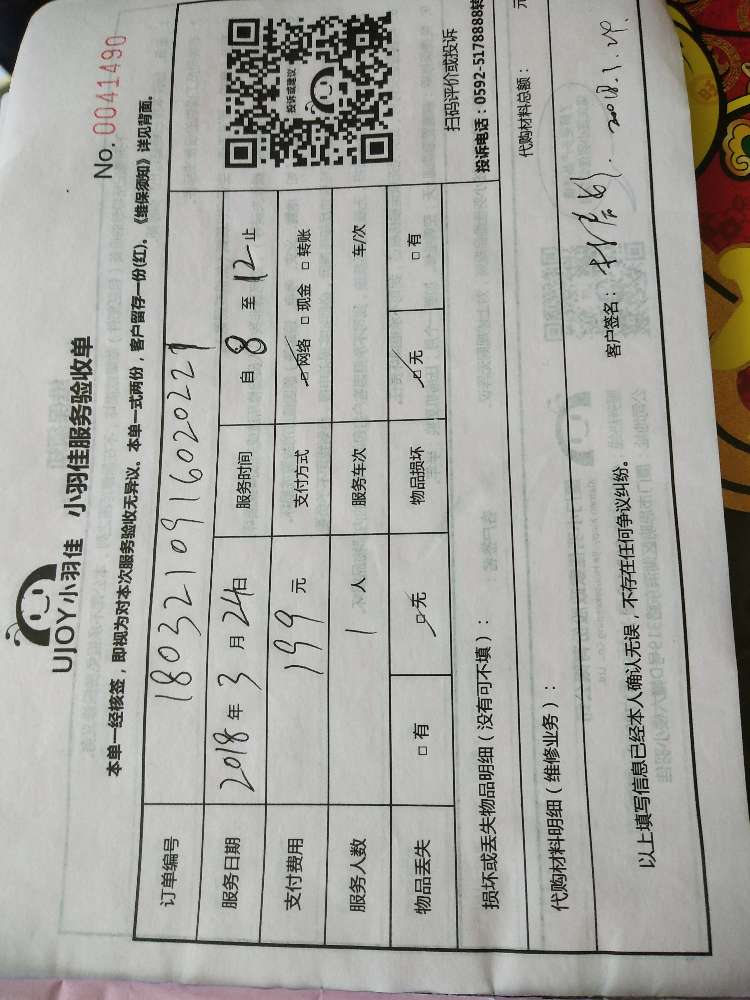 UJOY小羽佳 小羽佳服务验收单
No. 0041490
本单一经核签，即视为对本次服务验收无异议。本单一式两份，客户留存一份(红)。《维保须知》详见背面。
订单编号 180321091602022
服务日期 2018 年 3 月 24 日 服务时间 自 8 至 12 止
支付费用 199 元 支付方式 ☑网络 □现金 □转账
服务人数 1 人 服务车次 车/次
物品丢失 □有 ☑无 物品损坏 ☑无 □有
投诉或建议
扫码评价或投诉
投诉电话：0592-5178888转
损坏或丢失物品明细（没有可不填）：
代购材料明细（维修业务）： 代购材料总额： 元
以上填写信息已经本人确认无误，不存在任何争议纠纷。 客户签名：